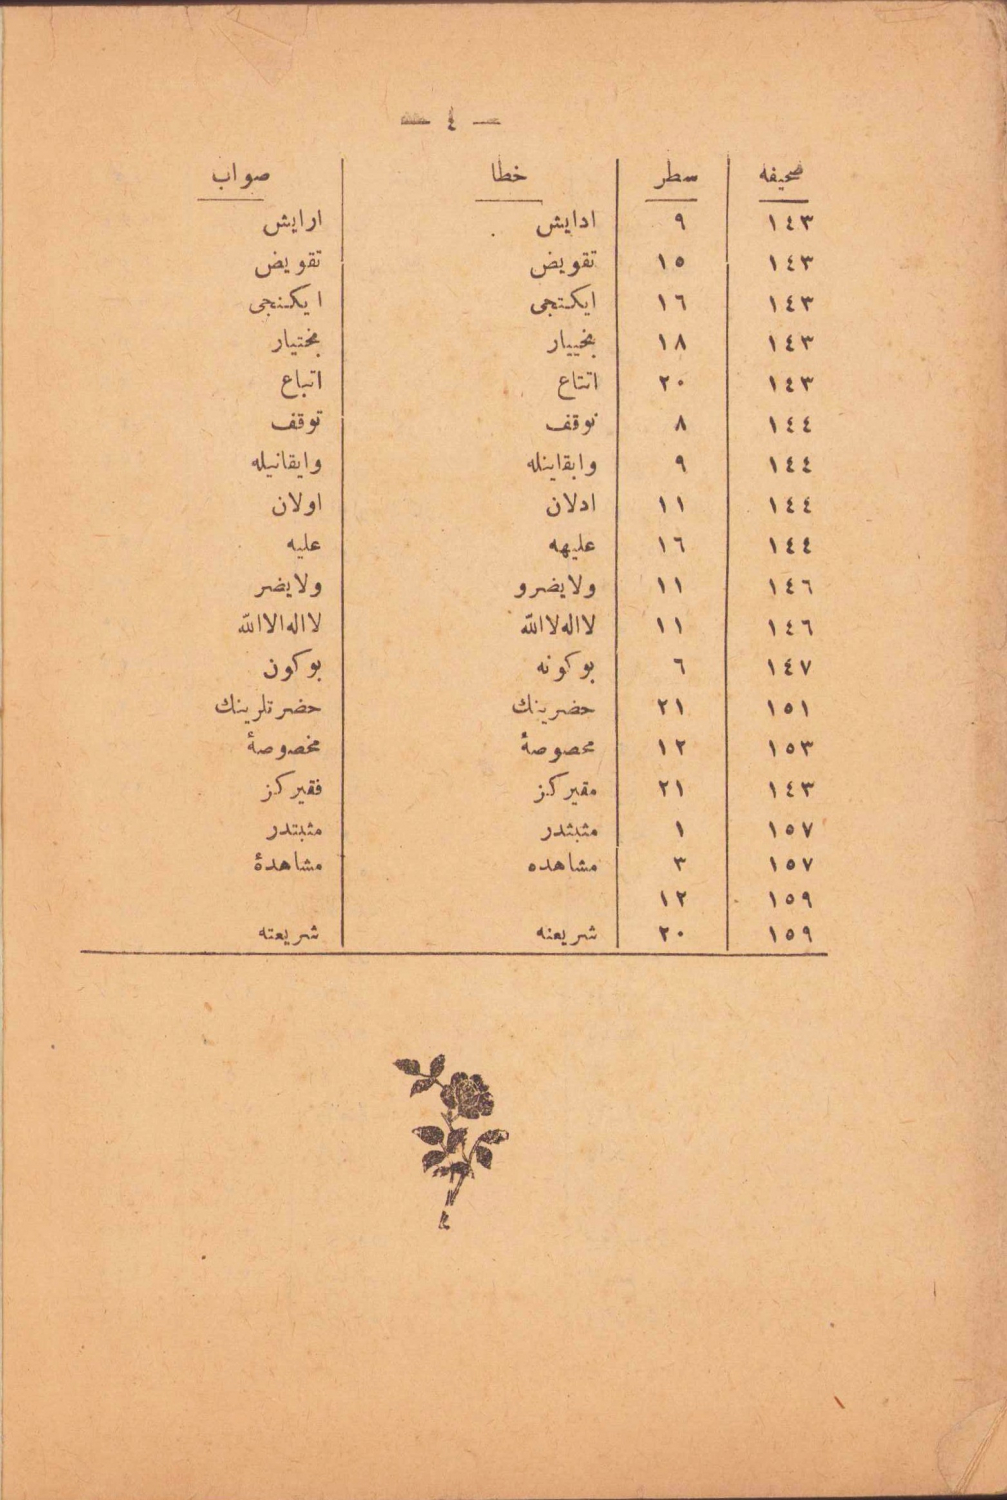 — ٤ —
صحيفه سطر خطا صواب
١٤٣ ٩ ادايش ارايش
١٤٣ ١٥ تقويض تقويض
١٤٣ ١٦ ايكتجى ايكنجى
١٤٣ ١٨ بخييار بختيار
١٤٣ ٢٠ اتتاع اتباع
١٤٤ ٨ نوقف توقف
١٤٤ ٩ وابقاينله وايقانيله
١٤٤ ١١ ادلان اولان
١٤٤ ١٦ عليهه عليه
١٤٦ ١١ ولايضرو ولايضر
١٤٦ ١١ لااله لاالله لااله الاالله
١٤٧ ٦ بوكونه بوكون
١٥١ ٢١ حضرينك حضرتلرينك
١٥٣ ١٢ محصوصۀ مخصوصۀ
١٤٣ ٢١ مقيركز فقيركز
١٥٧ ١ مثبثدر مثبتدر
١٥٧ ٣ مشاهده مشاهدۀ
١٥٩ ١٢
١٥٩ ٢٠ شريعنه شريعته